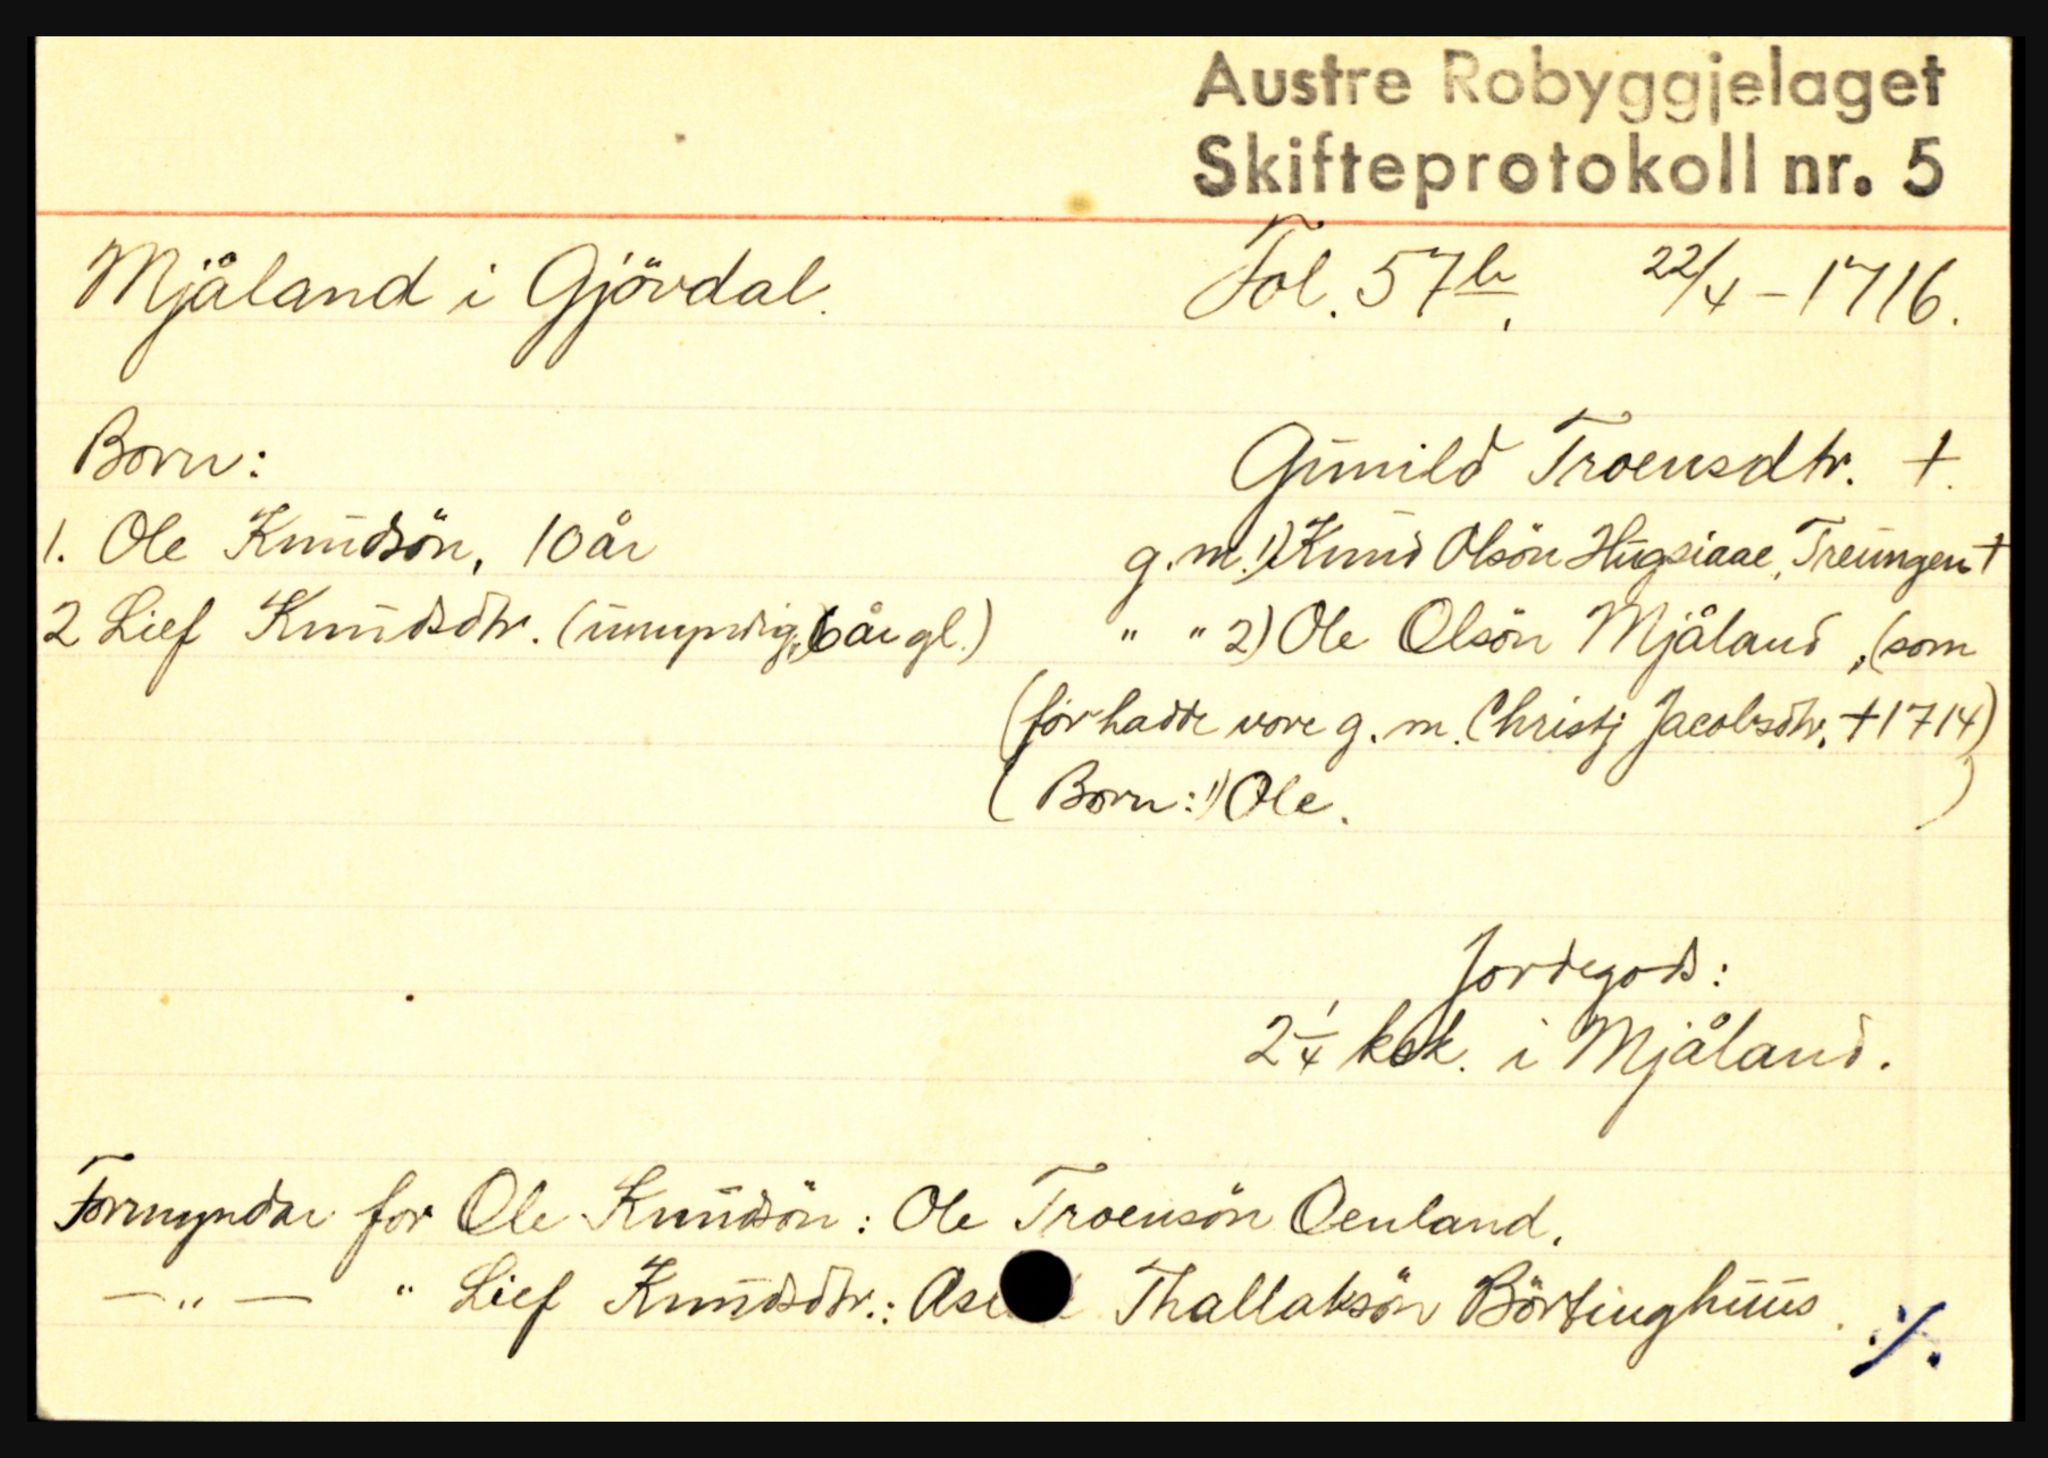 Austre Robyggjelaget
Skifteprotokoll nr. 5
Mjåland i Gjövdal. Fol. 57b. 22/4 - 1716.
Born: Gunild Troensdtr. †.
1. Ole Knudsön, 10 år g.m. 1) Knud Olsön Hugsiaae, Treungen †
2 Lief Knudsdtr. (umyndig, 6 år gl.) " " 2) Ole Olsön Mjåland, (som
(för hadde vore g. m. Christj Jacobsdtr, † 1714)
(Born: 1) Ole. )
Jordegods:
2 1/4 k.sk. i Mjåland.
Formyndar for Ole Knudsön: Ole Troensön Oenland.
— " — " Lief Knudsdtr.: Thallaksön Börtinghuus.
./.